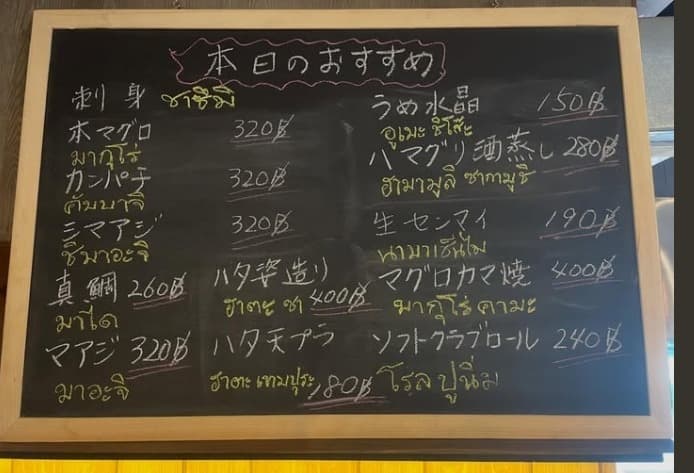 本日のおすすめ
刺身 ซาซิมิ
本マグロ 320฿
มากุโร่
カンパチ 320฿
คัมบาจิ
シマアジ 320฿
ชิมาอะจิ
真鯛 260฿
มาได
マアジ 320฿
มาอะจิ
ハタ姿造り
ฮาตะ ซา 400฿
ハタ天プラ
ฮาตะ เทมปุระ 180฿
うめ水晶 150฿
อูเมะ ซิโช๊ะ
ハマグリ酒蒸し 280฿
ฮามากูลิ ซากามูชิ
生センマイ 190฿
นามาเซ็นไม
マグロカマ焼 400฿
มากุโร่ คามะ
ソフトクラブロール 240฿
โรลปูนิ่ม